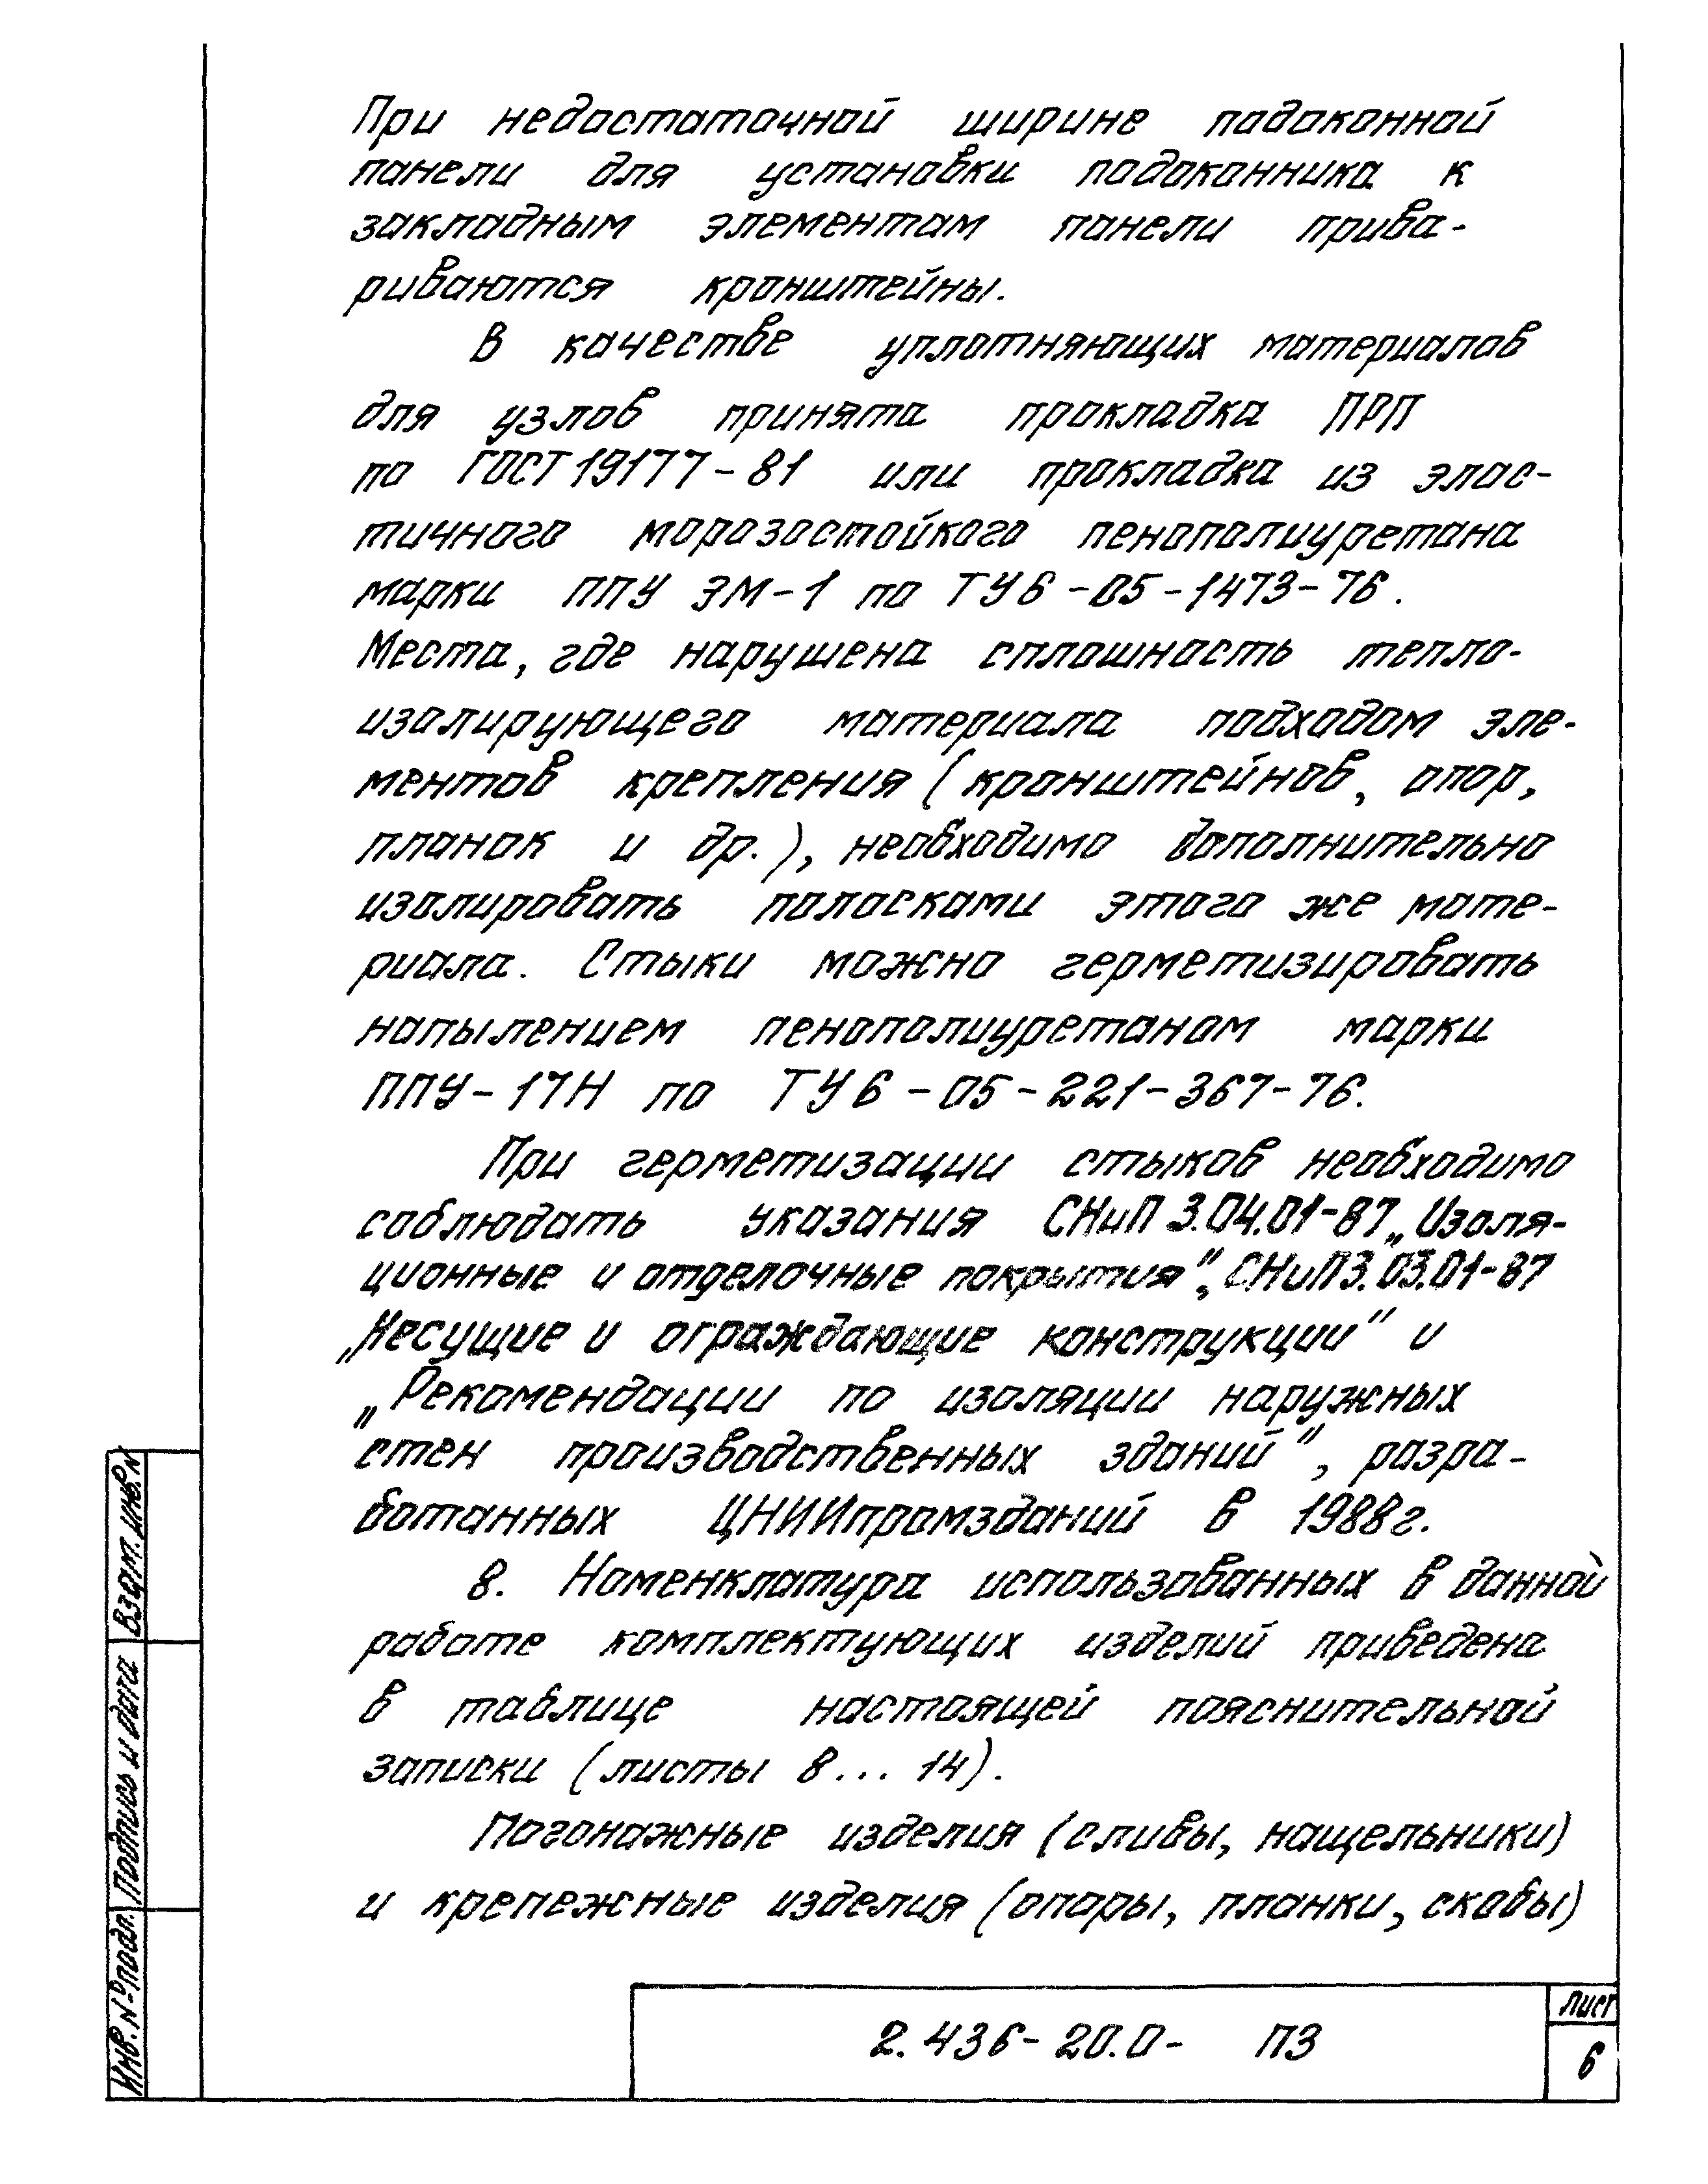 При недостаточной ширине подоконной
панели для установки подоконника к
закладным элементам панели прива-
риваются кронштейны.
В качестве уплотняющих материалов
для узлов принята прокладка ПРП
по ГОСТ 19177-81 или прокладка из элас-
тичного морозостойкого пенополиуретана
марки ППУ ЭМ-1 по ТУ6-05-1473-76.
Места, где нарушена сплошность тепло-
изолирующего материала подходом эле-
ментов крепления (кронштейнов, опор,
планок и др.), необходимо дополнительно
изолировать полосками этого же мате-
риала. Стыки можно герметизировать
напылением пенополиуретаном марки
ППУ-17Н по ТУ6-05-221-367-76.
При герметизации стыков необходимо
соблюдать указания СНиП 3.04.01-87 „Изоля-
ционные и отделочные покрытия", СНиП3.03.01-87
„Несущие и ограждающие конструкции" и
„Рекомендации по изоляции наружных
стен производственных зданий", разра-
ботанных ЦНИИпромзданий в 1988г.
8. Номенклатура использованных в данной
работе комплектующих изделий приведена
в таблице настоящей пояснительной
записки (листы 8... 14).
Погонажные изделия (сливы, нащельники)
и крепежные изделия (опоры, планки, скобы)
Взам. инв. N
Подпись и дата
Инв. № подл.
2.436-20.0- ПЗ
Лист
6